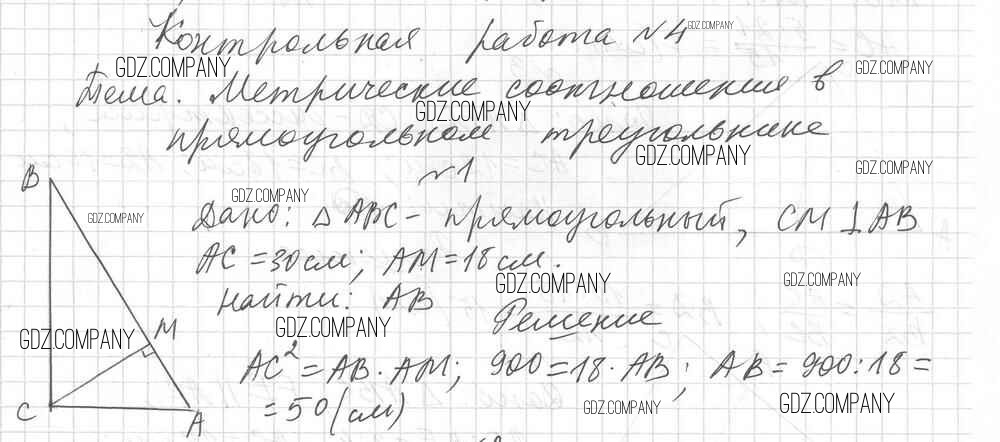 Контрольная работа №4
GDZ.COMPANY
GDZ.COMPANY
GDZ.COMPANY
Тема. Метрические соотношения в
GDZ.COMPANY
прямоугольном треугольнике
GDZ.COMPANY
GDZ.COMPANY
№1
B
GDZ.COMPANY
GDZ.COMPANY
Дано: △ABC - прямоугольный, CM ⊥ AB
AC = 30 см; AM = 18 см.
GDZ.COMPANY
GDZ.COMPANY
найти: AB
Решение
GDZ.COMPANY
GDZ.COMPANY
M
AC² = AB · AM; 900 = 18 · AB; AB = 900 : 18 =
= 50 (см)
GDZ.COMPANY
GDZ.COMPANY
C
A